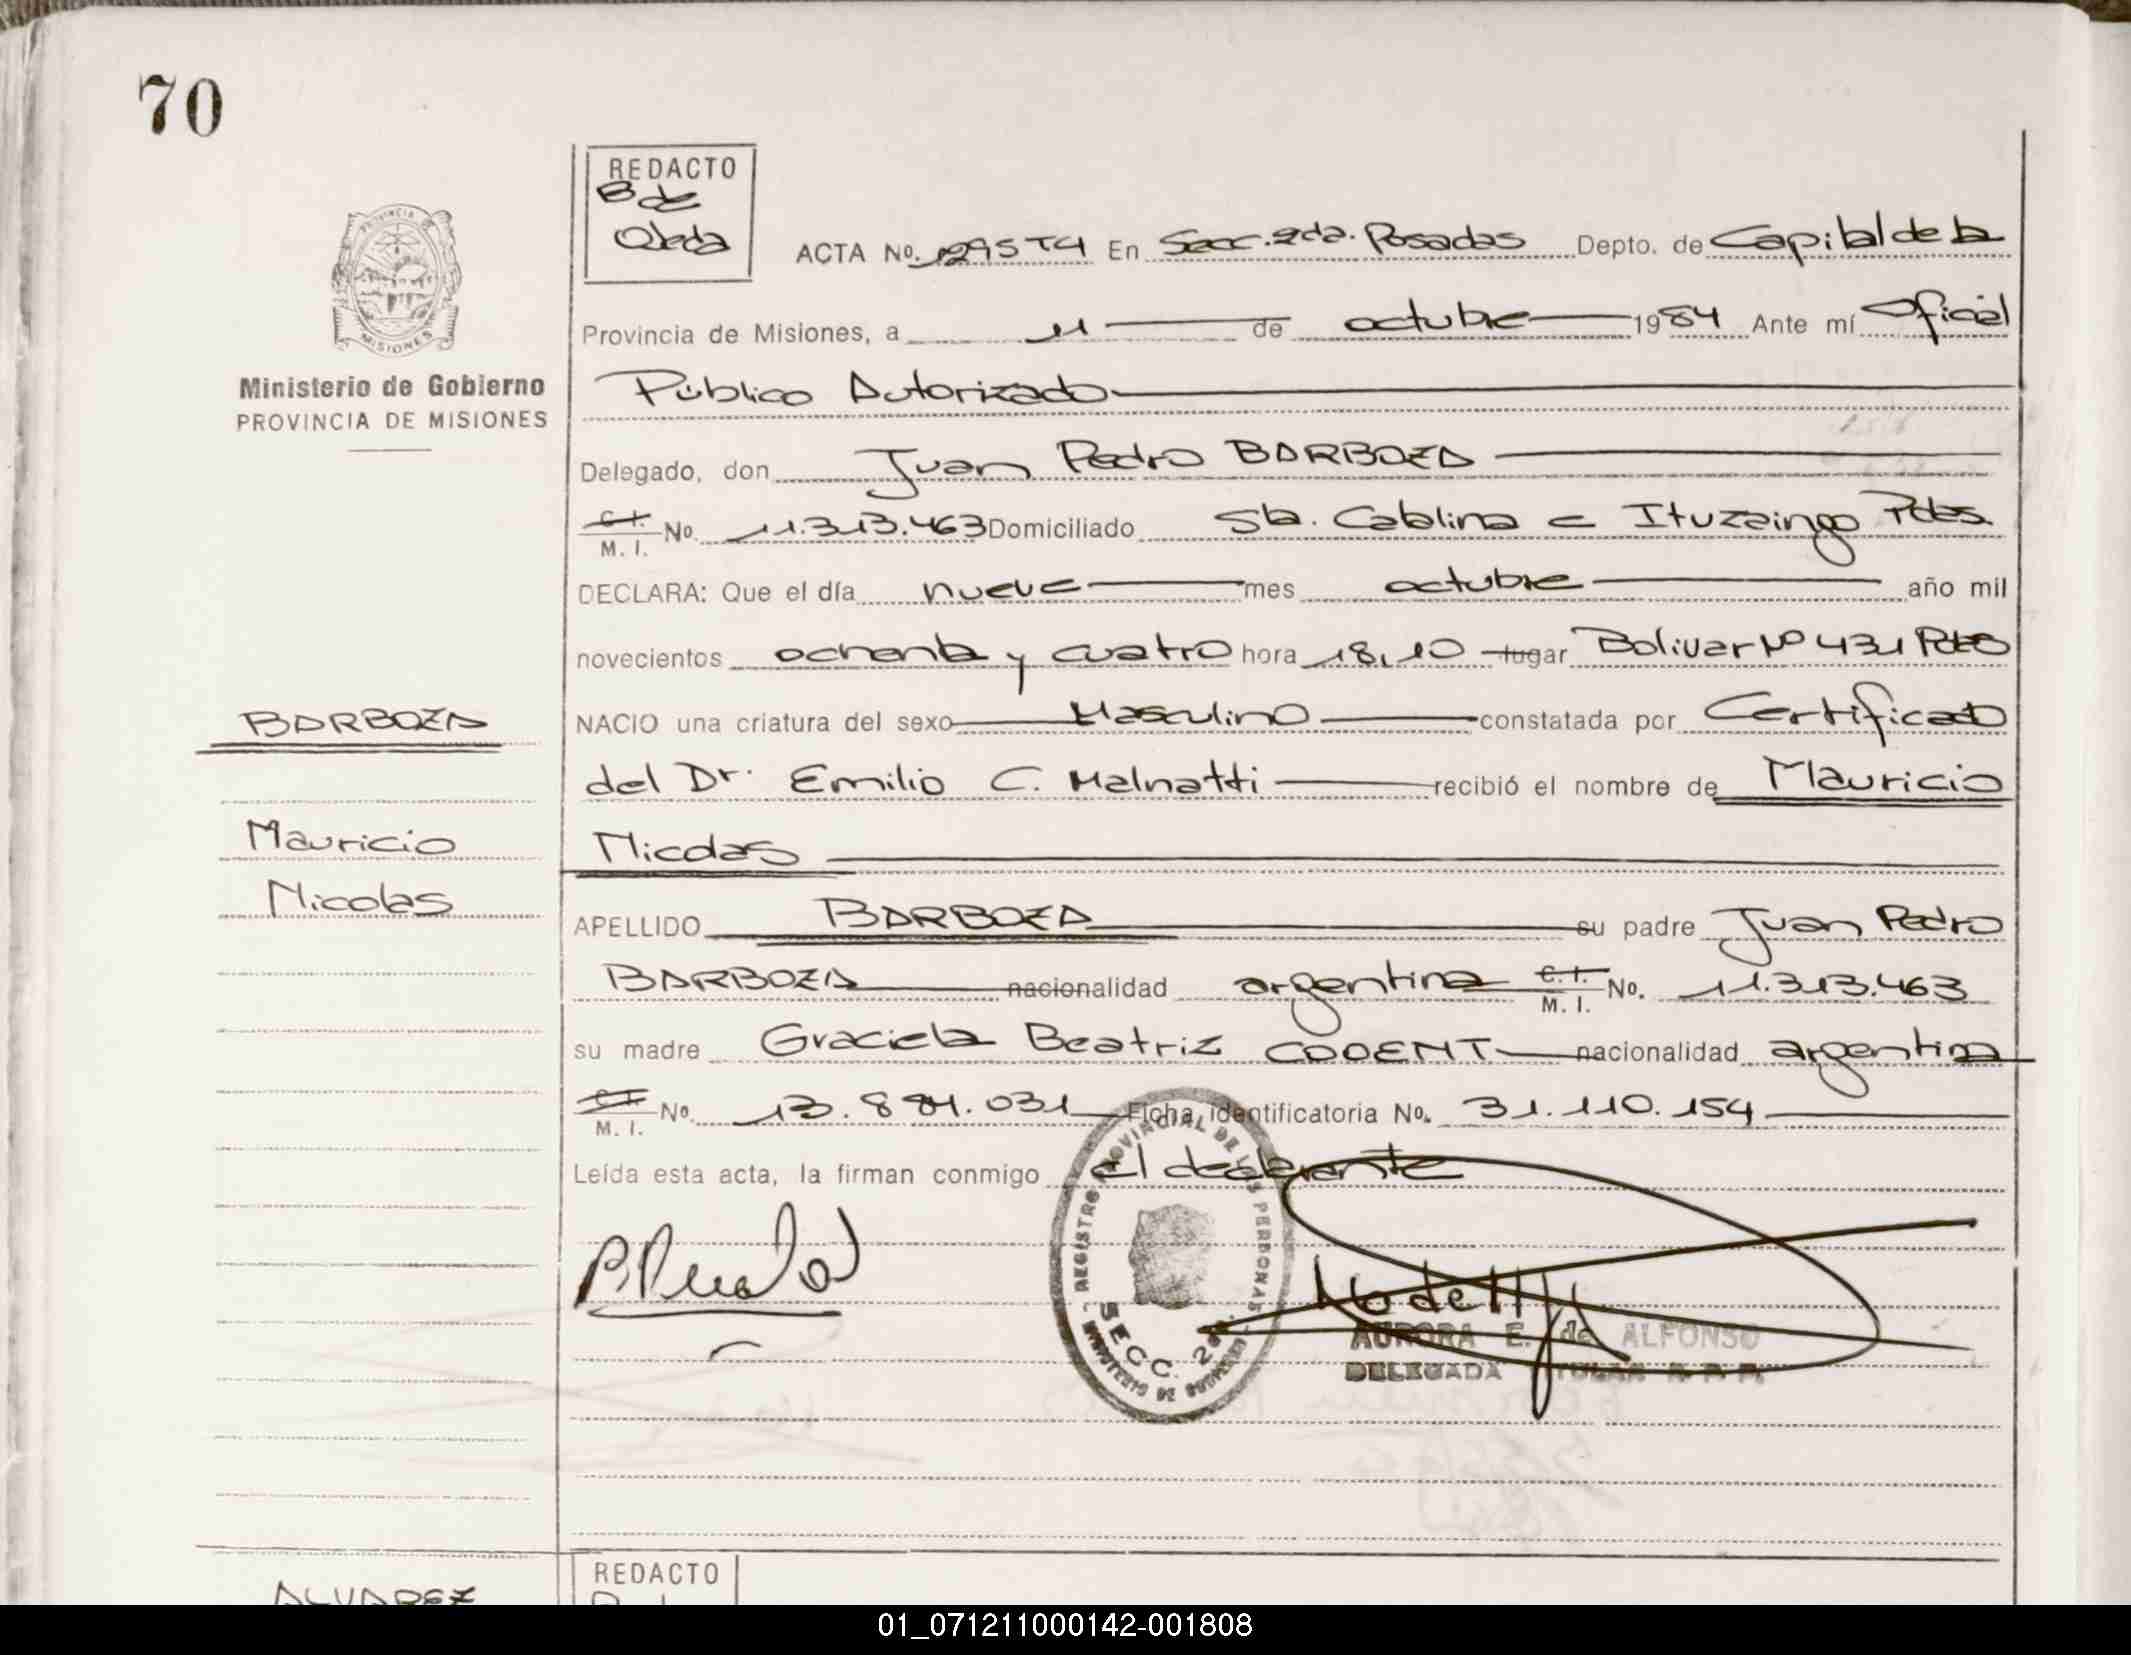 70
REDACTO
B de
Ojeda
ACTA No. 1295 T4 En Secc. 2da. Posadas Depto. de Capital de la
Provincia de Misiones, a 11 de octubre 1984 Ante mí Oficial
PROVINCIA DE MISIONES
Ministerio de Gobierno
PROVINCIA DE MISIONES
Público Autorizado
Delegado, don Juan Pedro BARBOZA
C.I. M. I. No. 11.313.463 Domiciliado Sta. Catalina e Ituzaingo Pdas.
DECLARA: Que el día nueve mes octubre año mil
novecientos ochenta y cuatro hora 18,10 lugar Bolivar Nº 431 Pdas
BARBOZA
NACIO una criatura del sexo Masculino constatada por Certificado
del Dr. Emilio C. Malnatti recibió el nombre de Mauricio
Mauricio
Nicolas
Nicolas
APELLIDO BARBOZA su padre Juan Pedro
BARBOZA nacionalidad argentina C.I. M. I. No. 11.313.463
su madre Graciela Beatriz nacionalidad argentina
C.I. M. I. No. 13. 031 Ficha identificatoria No. 31.110.154
Leída esta acta, la firman conmigo el declarante
REGISTRO PROVINCIAL DE LAS PERSONAS
SECC. 2da.
MINISTERIO DE GOBIERNO
AURORA E. de ALFONSO
DELEGADA TITULAR R. P. P.
ALVAREZ
REDACTO
01_071211000142-001808